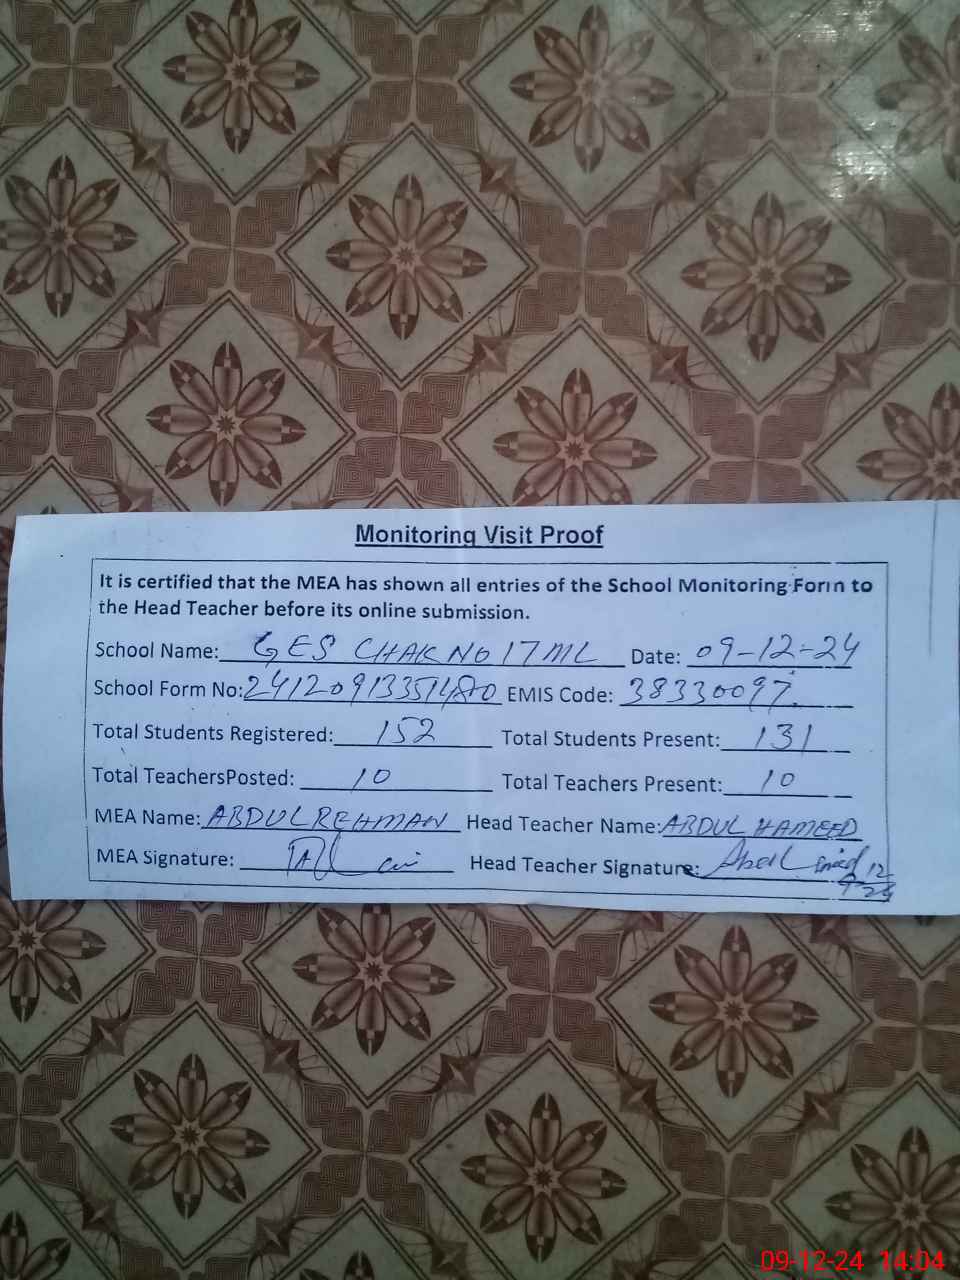 Monitoring Visit Proof
It is certified that the MEA has shown all entries of the School Monitoring Form to
the Head Teacher before its online submission.
School Name: GES CHAK NO 17 ML Date: 09-12-24
School Form No: EMIS Code: 38330097
Total Students Registered: 152 Total Students Present: 131
Total TeachersPosted: 10 Total Teachers Present: 10
MEA Name: ABDUL REHMAN Head Teacher Name: ABDUL HAMEED
MEA Signature: Head Teacher Signature:
09-12-24 14:04